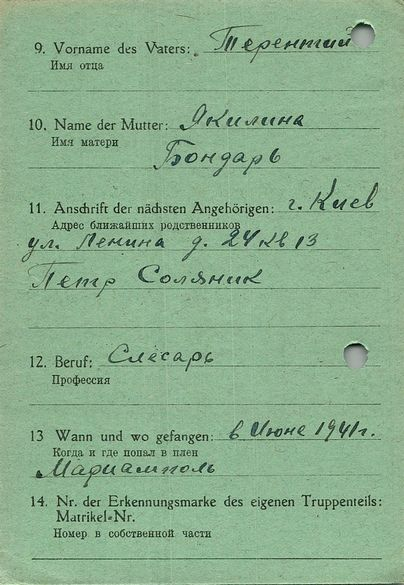 9. Vorname des Vaters: Терентий
Имя отца
10. Name der Mutter: Якилина
Имя матери
Бондарь
11. Anschrift der nächsten Angehörigen: г. Киев
Адрес ближайших родственников
ул. Ленина д. 24 кв 13
Петр Соляник
12. Beruf: Слесарь
Профессия
13 Wann und wo gefangen: в Июне 1941г.
Когда и где попал в плен
Мариамполь
14. Nr. der Erkennungsmarke des eigenen Truppenteils:
Matrikel-Nr.
Номер в собственной части